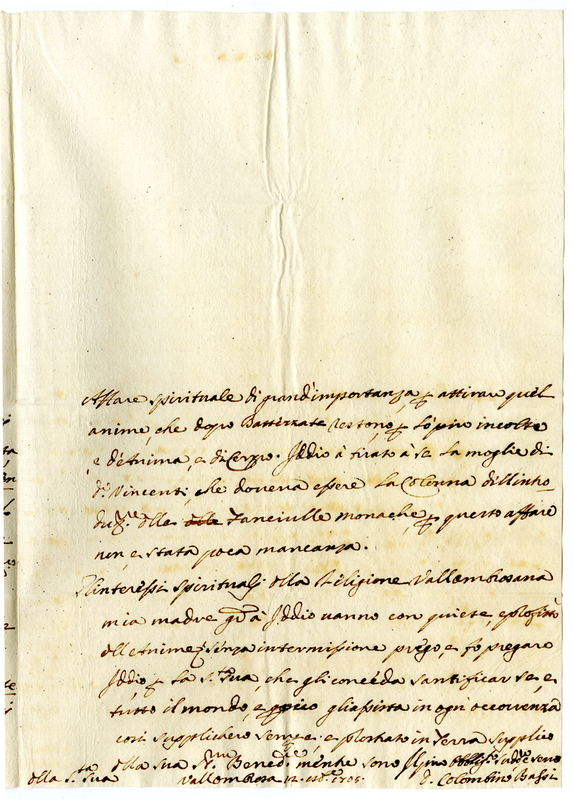 Affare spirituale di grand'importanza, p attirare quel
anime, che dopo Battezzate restono, p lo piu incolte
e d'Anima, e di Corpo. Iddio à tirato à se la moglie di
di Vincenti, che doveva essere la Colonna
delle Fanciulle Monache, p questo affare
non, e stata poca mancanza.
Gl'interessi spirituali della Religione Vallombrosana
mia madre Iddio vanno con quiete, e
dell'Anime, senza intermissione prego, e fo pregare
Iddio p la S. Sua, che gli conceda santificar se, e
tutto il mondo, e gli assista in ogni occorrenza
cosi supplichero sempre, e prostrato in Terra supplico
della S.ta Sua della sua Bened.e mentre sono
Vallombrosa 12.
D. Colombino Bassi